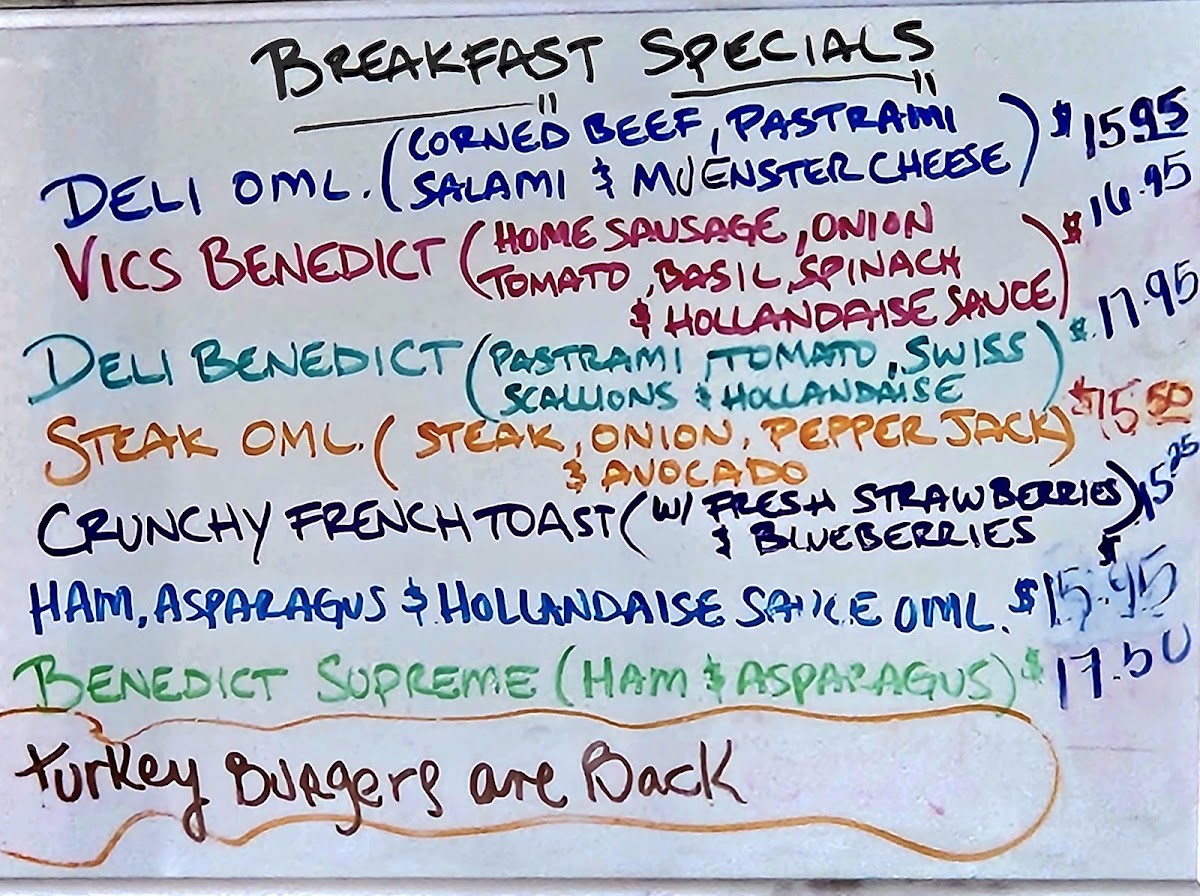 BREAKFAST SPECIALS
DELI OML. (CORNED BEEF, PASTRAMI $1595
SALAMI & MUENSTER CHEESE)
VICS BENEDICT (HOME SAUSAGE, ONION $16.95
TOMATO, BASIL, SPINACH
& HOLLANDAISE SAUCE)
DELI BENEDICT (PASTRAMI, TOMATO, SWISS $17.95
SCALLIONS & HOLLANDAISE)
STEAK OML. (STEAK, ONION, PEPPER JACK) $15 50
& AVOCADO
CRUNCHY FRENCH TOAST (W/ FRESH STRAWBERRIES) $15 25
& BLUEBERRIES
HAM, ASPARAGUS & HOLLANDAISE SAUCE OML. $15.95
BENEDICT SUPREME (HAM & ASPARAGUS) $17.50
turkey Burgers are Back